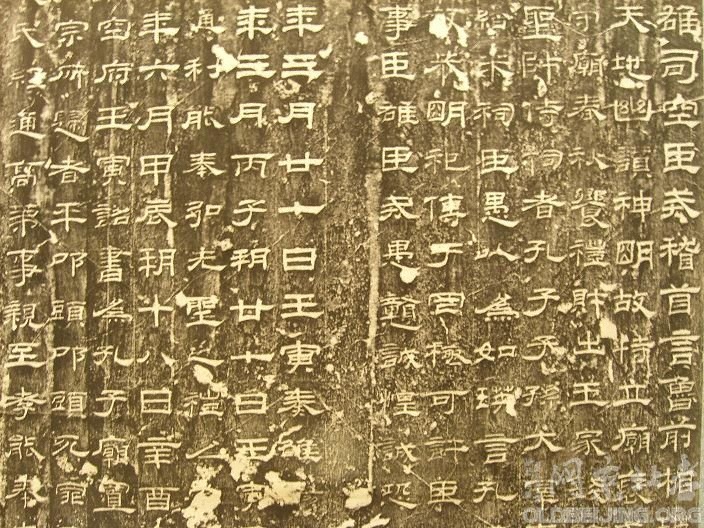 雄司空臣戒稽首言魯前相
天地幽讚神明故特立廟褒
守廟春秋饗禮財出王家錢
聖師侍祠者孔子子孫大宰
給米祠臣愚以爲如瑛言孔
敬恭明祀傳于罔極可許臣
事臣雄臣戒愚戇誠惶誠恐
年三月廿七日壬寅奏雒
年三月丙子朔廿七日壬寅
通利能奉弘先聖之禮爲
年六月甲辰朔十八日辛酉
空府壬寅詔書爲孔子廟置
宗所歸者平叩頭叩頭死罪
氏經通高第事親至孝能奉
OLDBEIJING.ORG